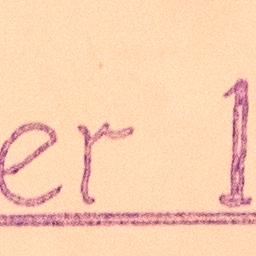 er 1